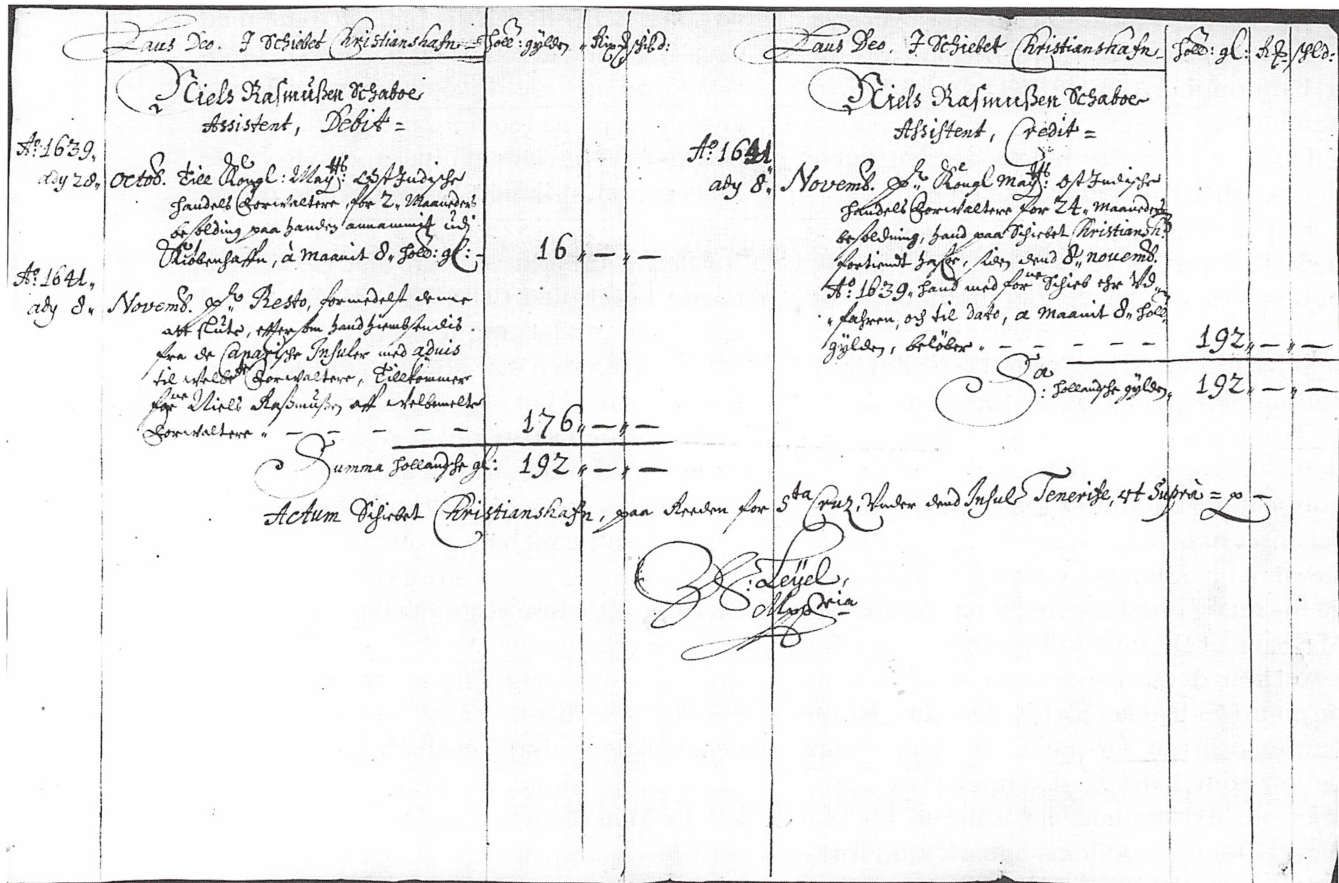 Laus Deo. J Schibet Christianshafn = holl: gÿlden
Niels Rasmußen Schaboe
Assistent, Debit =
Aº. 1639.
ady 28. Octob. Till Kongl: Maytts: Ost Indische
handels Forwaltere, for 2. Maaneders
besolding paa handen annammit udj
Kiøbenhaffn, à Maanit 8. hold: gl: - 16 „ — „ —
Aº. 1641.
ady 8. Novemb. pr Resto, formedelst denne
att slute, effter som hand hiemsendis
fra de Canarische Insuler med aduis
til welbte Forwaltere, Tillkommer
forne Niels Rasmußen aff welbemelte
Forwaltere „ — — — — — 176 „ — „ —
Summa hollandsche gl: 192 „ — „ —
Laus Deo. J Schibet Christianshafn. hold: gl:
Niels Rasmußen Schaboe
Assistent, Credit =
Aº. 1641
ady 8. Novemb. pr Kongl Maytts: Ost Indische
handels Forwaltere for 24. Maaneders
besoldning, hand paa Schibet Christiansh:
fortient hafr, siden dend 8. Novemb.
Aº. 1639. hand med forne Schieb ehr Vd-
fahren, och til dato, a Maanit 8. hold
gÿlden, beløber „ — — — — — 192 „ — „ —
Sa: hollandsche gÿlden, 192 „ — „ —
Actum Schibet Christianshafn, paa Reeden for Sta Cruz, Vnder dend Insul Tenerife, vt Suprà =
Leÿel,
Mppria